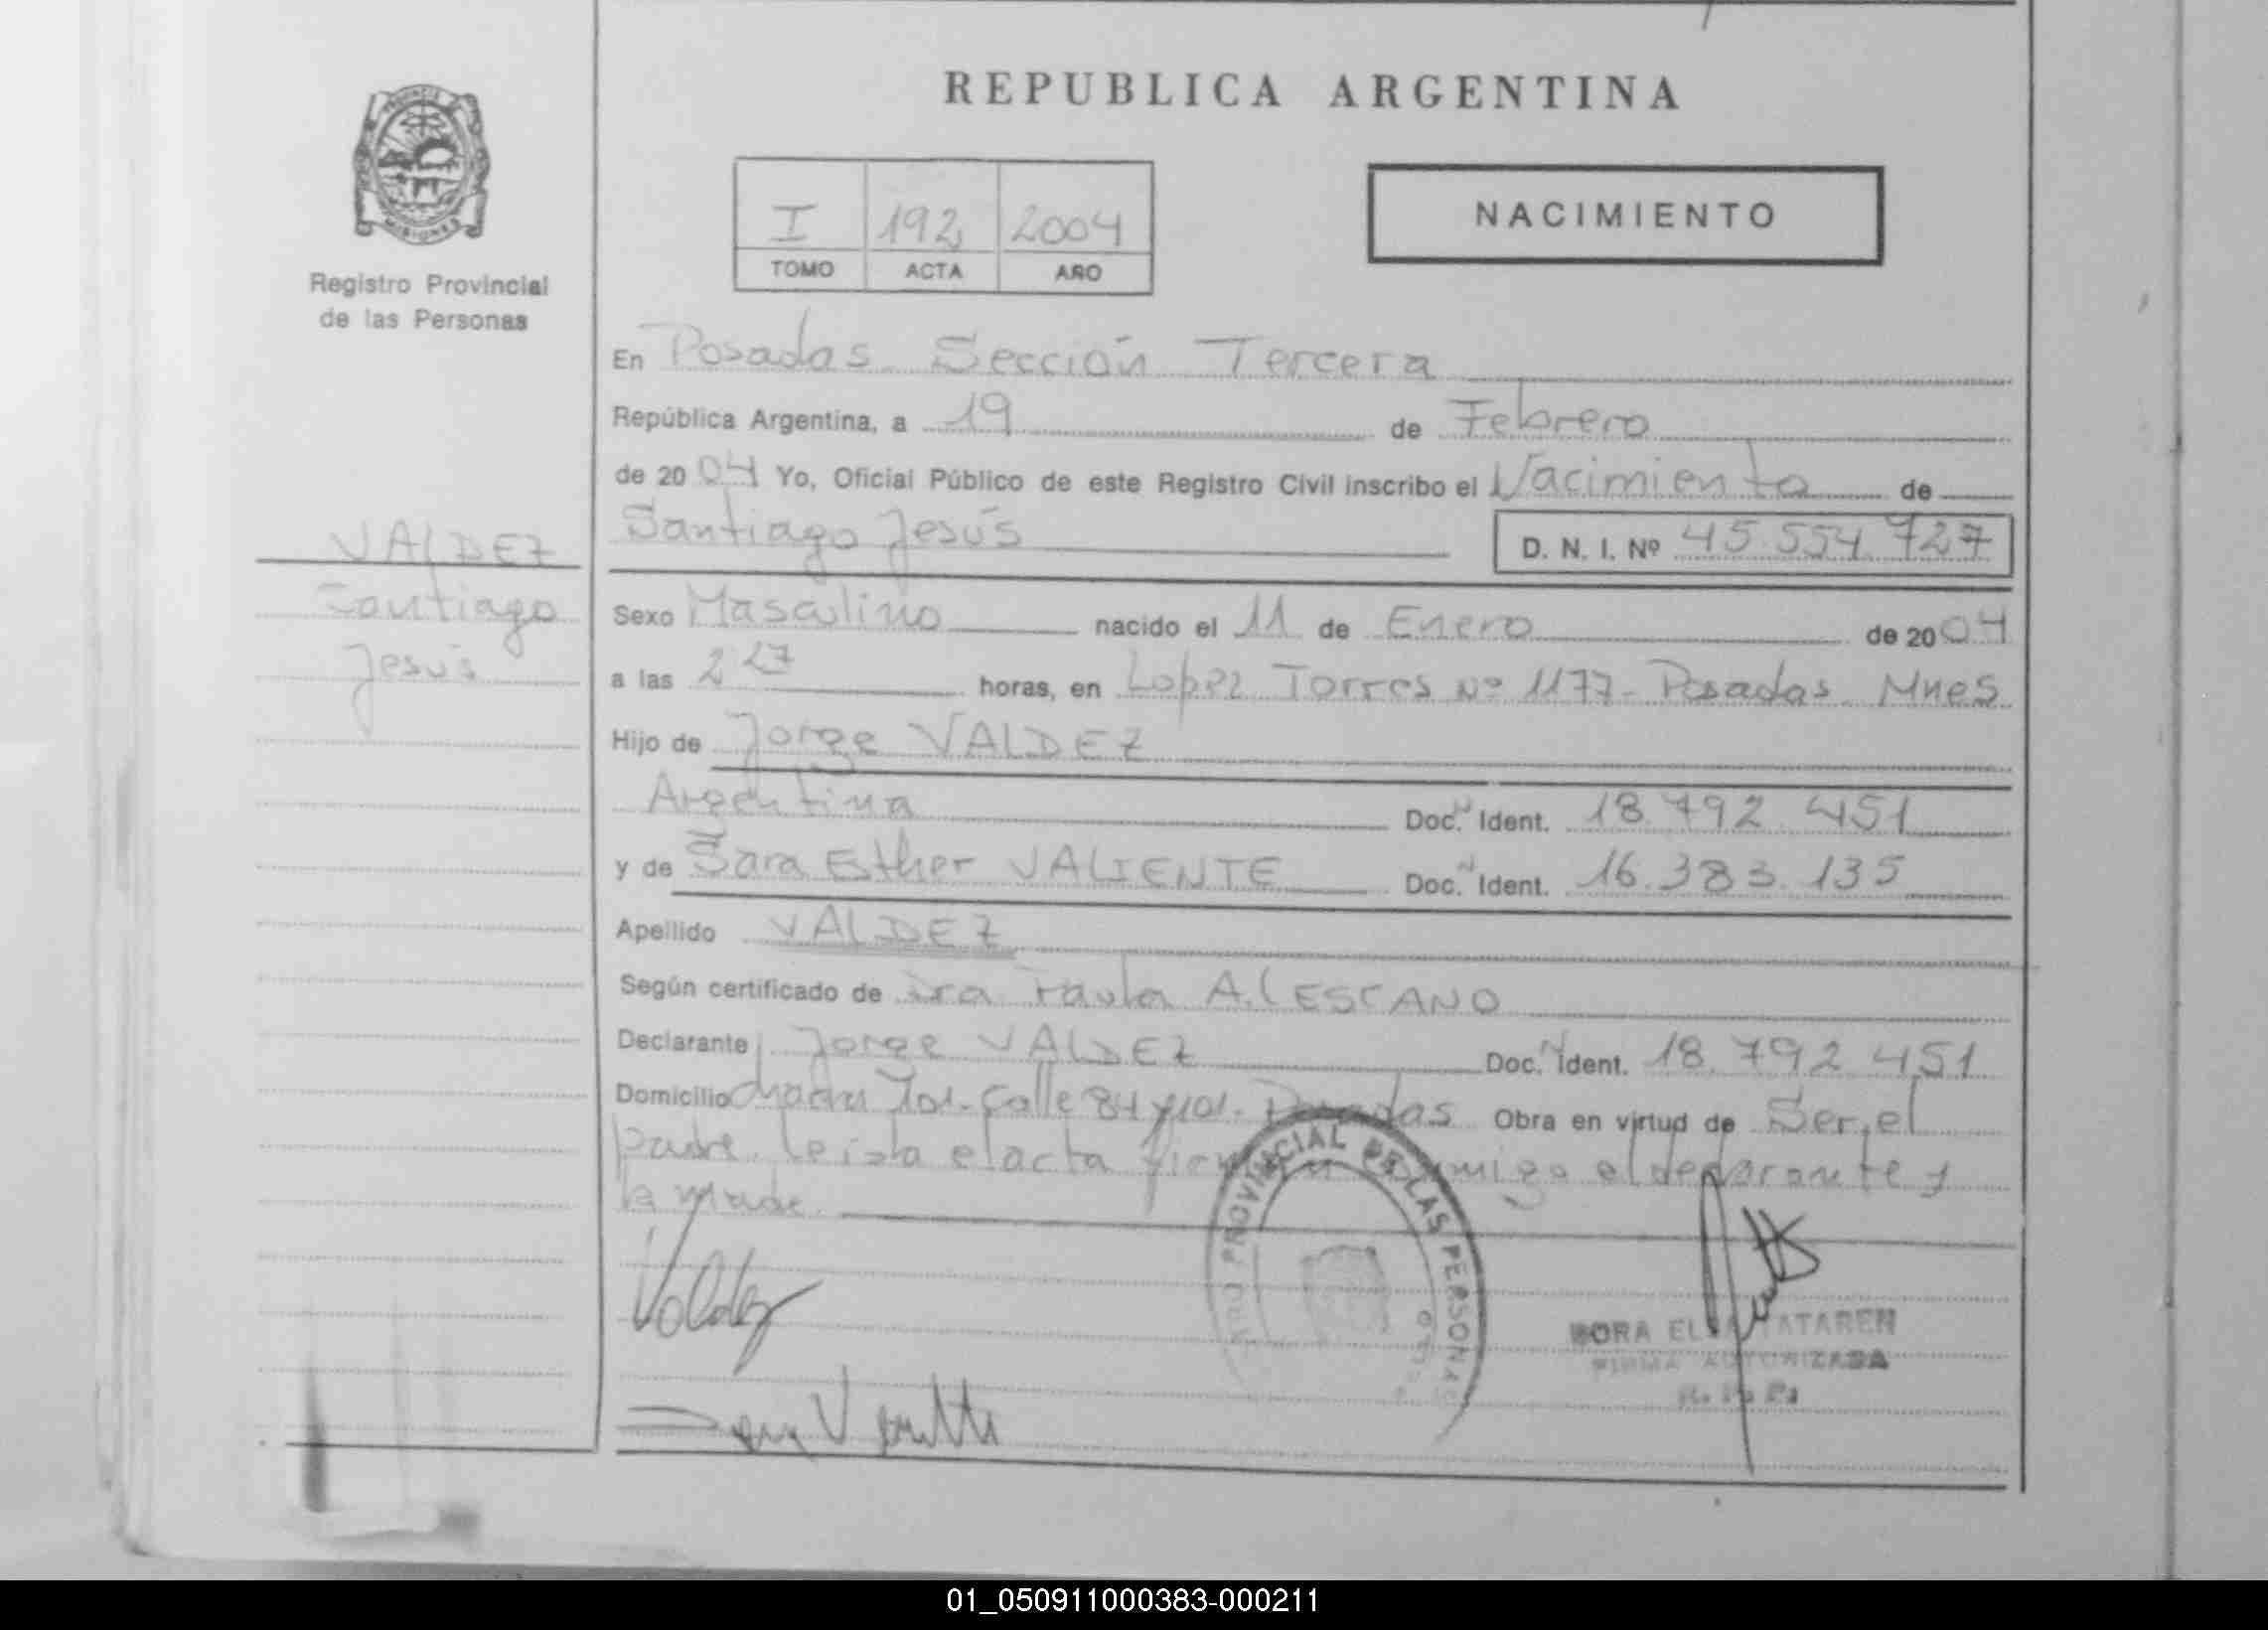 REPUBLICA ARGENTINA
PROVINCIA DE
MISIONES
Registro Provincial
de las Personas
I 192 2004
TOMO ACTA AÑO
NACIMIENTO
En Posadas Sección Tercera
República Argentina, a 19 de Febrero
de 2004 Yo, Oficial Público de este Registro Civil inscribo el Nacimiento de
Santiago Jesús D. N. I. Nº 45.554.727
VALDEZ
Santiago
Jesús
Sexo Masculino nacido el 11 de Enero de 2004
a las 2 27 horas, en Lopez Torres Nº 1177 - Posadas Mnes
Hijo de Jorge VALDEZ
Argentina Doc. Ident. 18.792.451
y de Sara Esther VALIENTE Doc. Ident. 16.383.135
Apellido VALDEZ
Según certificado de Paula A. LESCANO
Declarante Jorge VALDEZ Doc. Ident. 18.792.451
Domicilio Calle 84 y 101. Posadas Obra en virtud de Ser el
padre. Leida el acta el declarante y
la madre.
Valdez
PROVINCIAL DE LAS PERSONAS
FIRMA AUTORIZADA
01_050911000383-000211